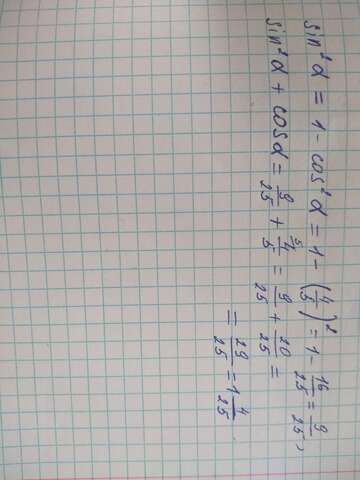 sin²α = 1 - cos²α = 1 - (4/5)² = 1 - 16/25 = 9/25,
sin²α + cosα = 9/25 + 4/5 ⁵ = 9/25 + 20/25 =
= 29/25 = 1 4/25